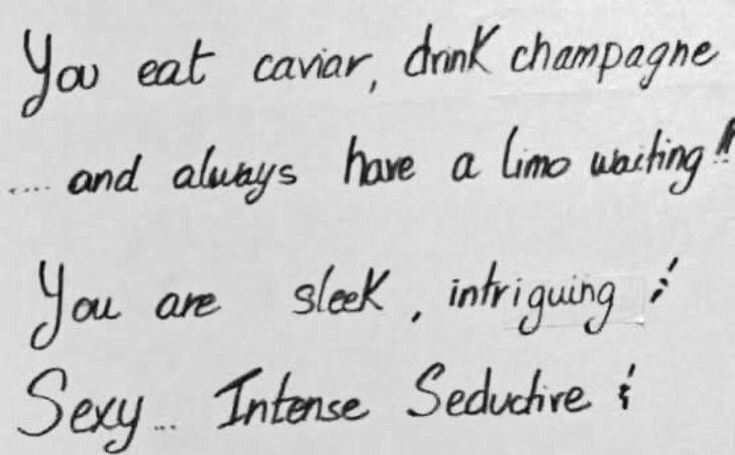 You eat caviar, drink champagne
.... and always have a limo waiting!!
You are sleek, intriguing !
Sexy... Intense Seductive !